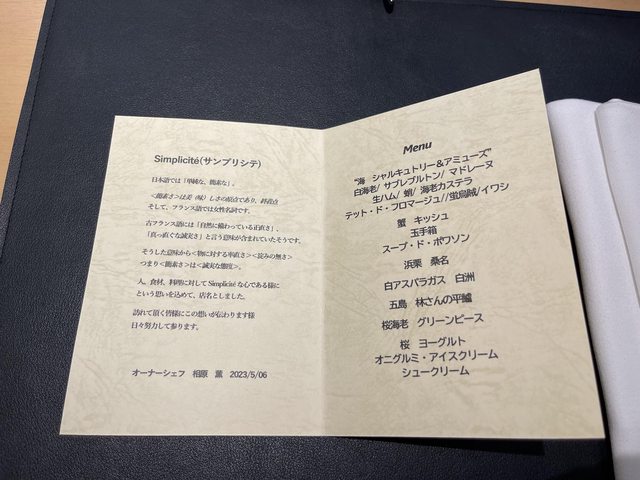 Simplicité(サンプリシテ)
日本語では「単純な、簡素な」。
<簡素さ>は美（味）しさの原点であり、終着点
そして、フランス語では女性名詞です。
古フランス語には「自然に備わっている正直さ」、
「真っ直ぐな誠実さ」と言う意味が含まれていたそうです。
そうした意味から<物に対する率直さ><淀みの無さ>
つまり<簡素さ>は<誠実な態度>。
人、食材、料理に対してSimplicitéな心である様に
という思いを込めて、店名としました。
訪れて頂く皆様にこの想いが伝わります様
日々努力して参ります。
オーナーシェフ 相原 薫 2023/5/06
Menu
“海 シャルキュトリー＆アミューズ”
白海老/ サブレブルトン/ マドレーヌ
生ハム/ 蛸/ 海老カステラ
テット・ド・フロマージュ//蛍烏賊/イワシ
蟹 キッシュ
玉手箱
スープ・ド・ポワソン
浜栗 桑名
白アスパラガス 白洲
五島 林さんの平鱸
桜海老 グリーンピース
桜 ヨーグルト
オニグルミ・アイスクリーム
シュークリーム